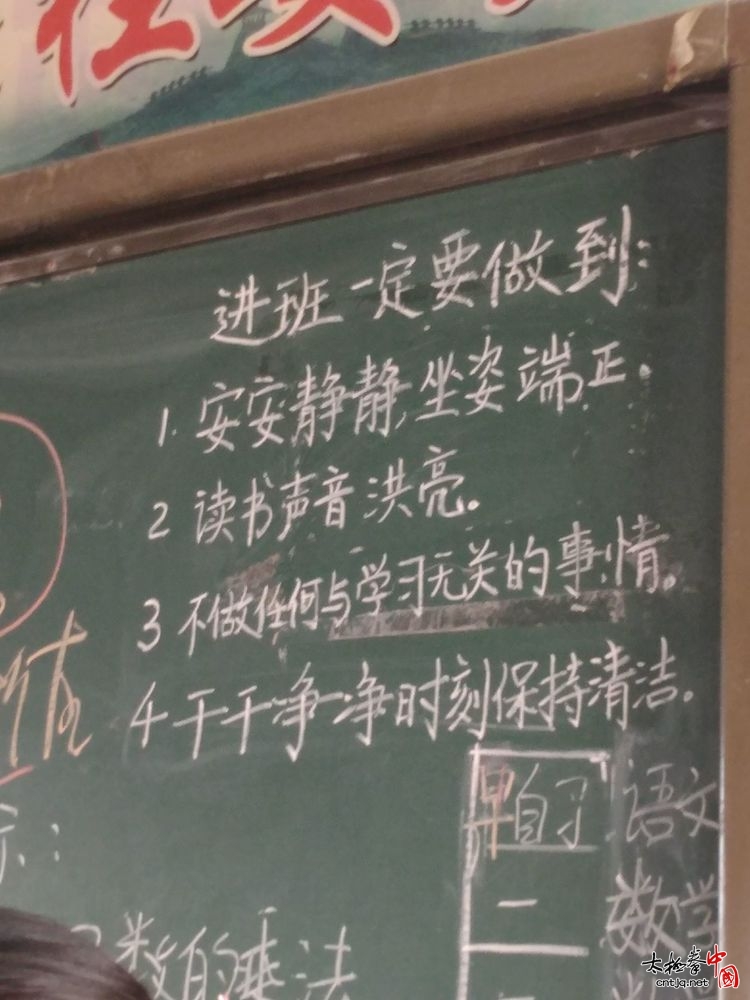 进班一定要做到:
1.安安静静,坐姿端正。
2 读书声音洪亮。
3 不做任何与学习无关的事情。
4 干干净净时刻保持清洁。
早自习 语文
一 数学
数的乘法
太极拳中国
cntjq.net